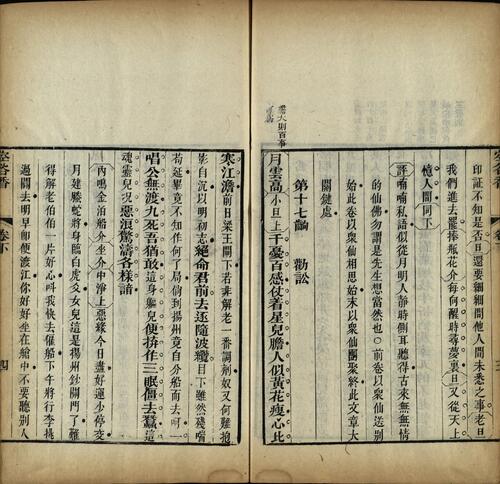 印証不知是否旦還要細細問他人間未悉之事老旦
我們進去罷捧瓶花介每向醒時尋夢裏旦又從天上
憶人間同下
評喃喃私語似從月明人靜時側耳聽得古來無無情
的仙佛勿謂是先生想當然也○前卷以衆仙送別
始此卷以衆仙相思始末以衆仙團聚終此文章大
關鍵處
第十七齣 勸訟
月雲高小旦上千憂百感仗着星兒膽人似黃花瘦心比
寒江澹前日梁王閘下若非解老一番調劑奴又何難抱
影自沉以明初志絕命君前去還隨波纜目下雖然殘喘
苟延畢竟不知作何了局倘到揚州竟自分船而去啊
唱公無渡九死吾猶敢這身軀兒便拚作三眠僵去蠶這
魂靈兒況慈浪驚濤各樣諳
內鳴金泊船介坐介中淨上惡緣今日盡好運少停交
月建騰蛇將身臨白虎爻女兒這是揚州鈔關門了難
得解老伯伯一片好心呌我快去催船下午將行李挑
過關去明早卽便渡江你好好坐在艙中不要聽別人
卷下
四